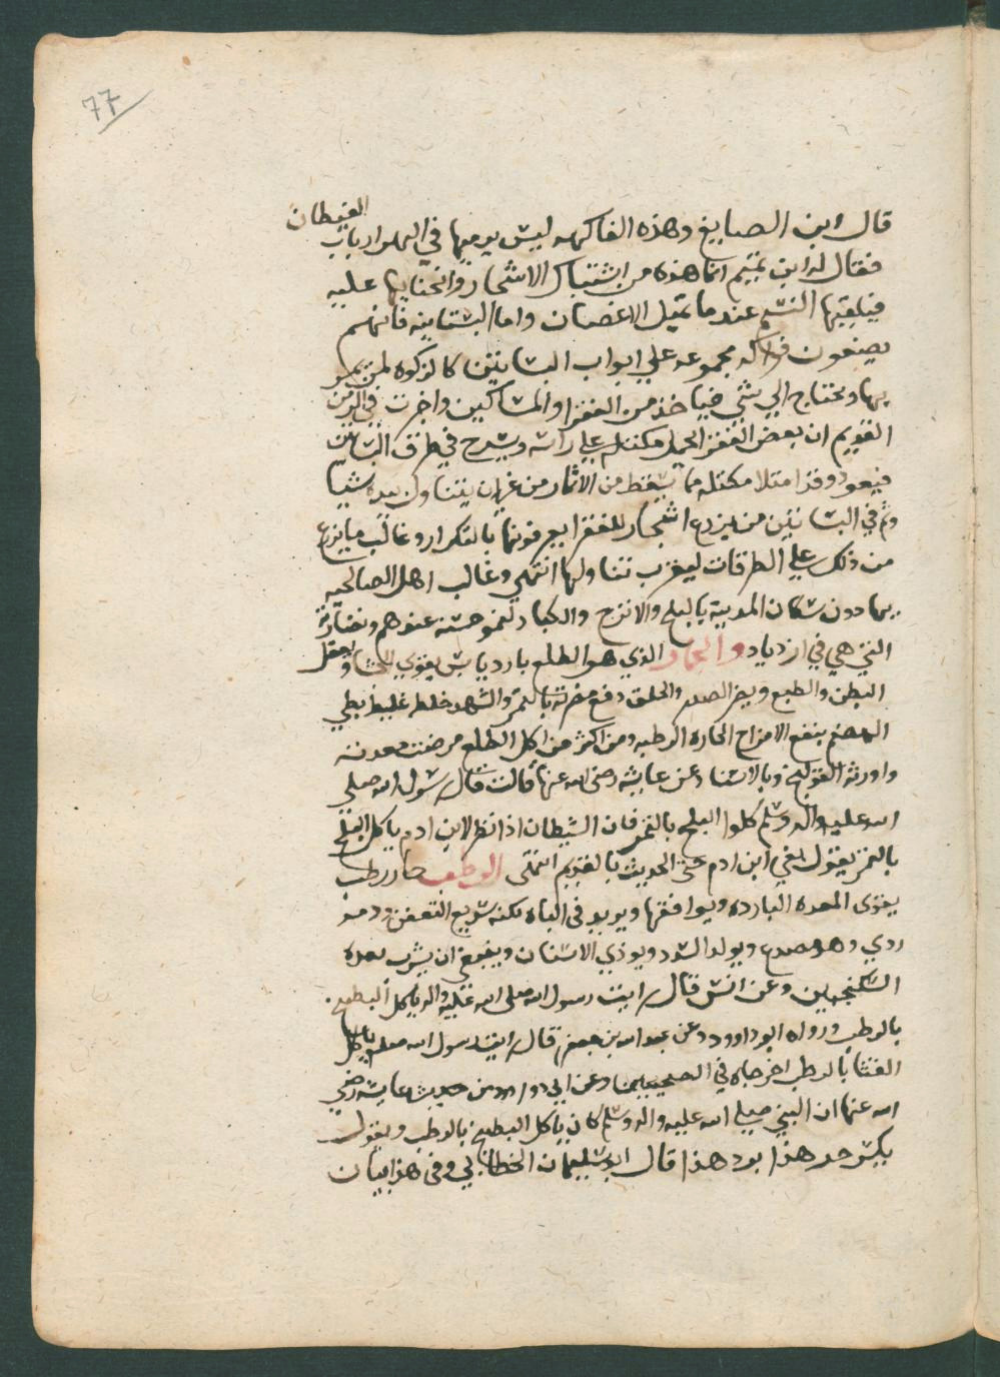 77
الغيطان
قال ابن الصايغ وهذه الفاكهه ليس يرميها في النهر ارباب
فقال له ابن تميم انما هذه من اشتباك الاشجار وانحنايها عليه
فيلقيها النسيم عندما تميل الاغصان واما البستاينه فانهم
يضعون فواكه مجموعه علي ابواب البساتين كالزكوه لمن يمر
بها ويحتاج الي شي فياخذ من الفقرا والمساكين واخبرت في الزمن
القديم ان بعض الفقرا يحمل مكتله علي راسه ويسرح في طرق البساتين
فيعود وقد امتلا مكتله مما يسقط من الاثمار من غير ان يتناول بيده شيا
وثم في البساتين من يزرع اشجار للفقرا يعرفونها بالتكرار وغالب ما يزرع
من ذلك علي الطرقات ليقرب تناولها انتهي وغالب اهل الصالحيه
يهادون سكان المدينة بالبلح والاترج والكباد لنمو حسنه عندهم ونضارته
التي هي في ازدياد والجمار الذي هو الطلع بارد يابس يقوي الحشا ويعقل
البطن والطبع ويضر الصدر والحلق دفع مضرته بالتمر والشهد خلطه غليظ بطي
الهضم ينفع الامزاج الحاره الرطبه ومن اكثر من اكل الطلع مرضت معدته
واورثه القولنج وبالاسناد عن عايشه رضي الله عنها قالت قال رسول الله صلي
الله عليه واله وسلم كلوا البلح بالتمر فان الشيطان اذا نظر لابن ادم ياكل البلح
بالتمر يقول بقي ابن ادم حتى الحديث بالقديم انتهى الرطب حار رطب
يقوى المعده البارده ويوافقها ويزيد في الباه لكنه سريع التعفن ودمه
ردي وهو مصدع ويولد السدد ويوذي الاسنان وينبغي ان يشرب بعده
السكنجبين وعن انس قال رايت رسول الله صلى الله عليه واله ياكل البطيخ
بالرطب ورواه ابو داوود وعن عبد الله بن جعفر قال رايت رسول الله صلعم ياكل
القثا بالرطب اخرجاه في الصحيحين وعن ابي داود من حديث عايشه رضي
الله عنها ان النبي صلي الله عليه واله وسلم كان ياكل البطيخ بالرطب ويقول
يكسر حر هذا برد هذا قال ابو سليمان الخطابي وفي هذا بيان